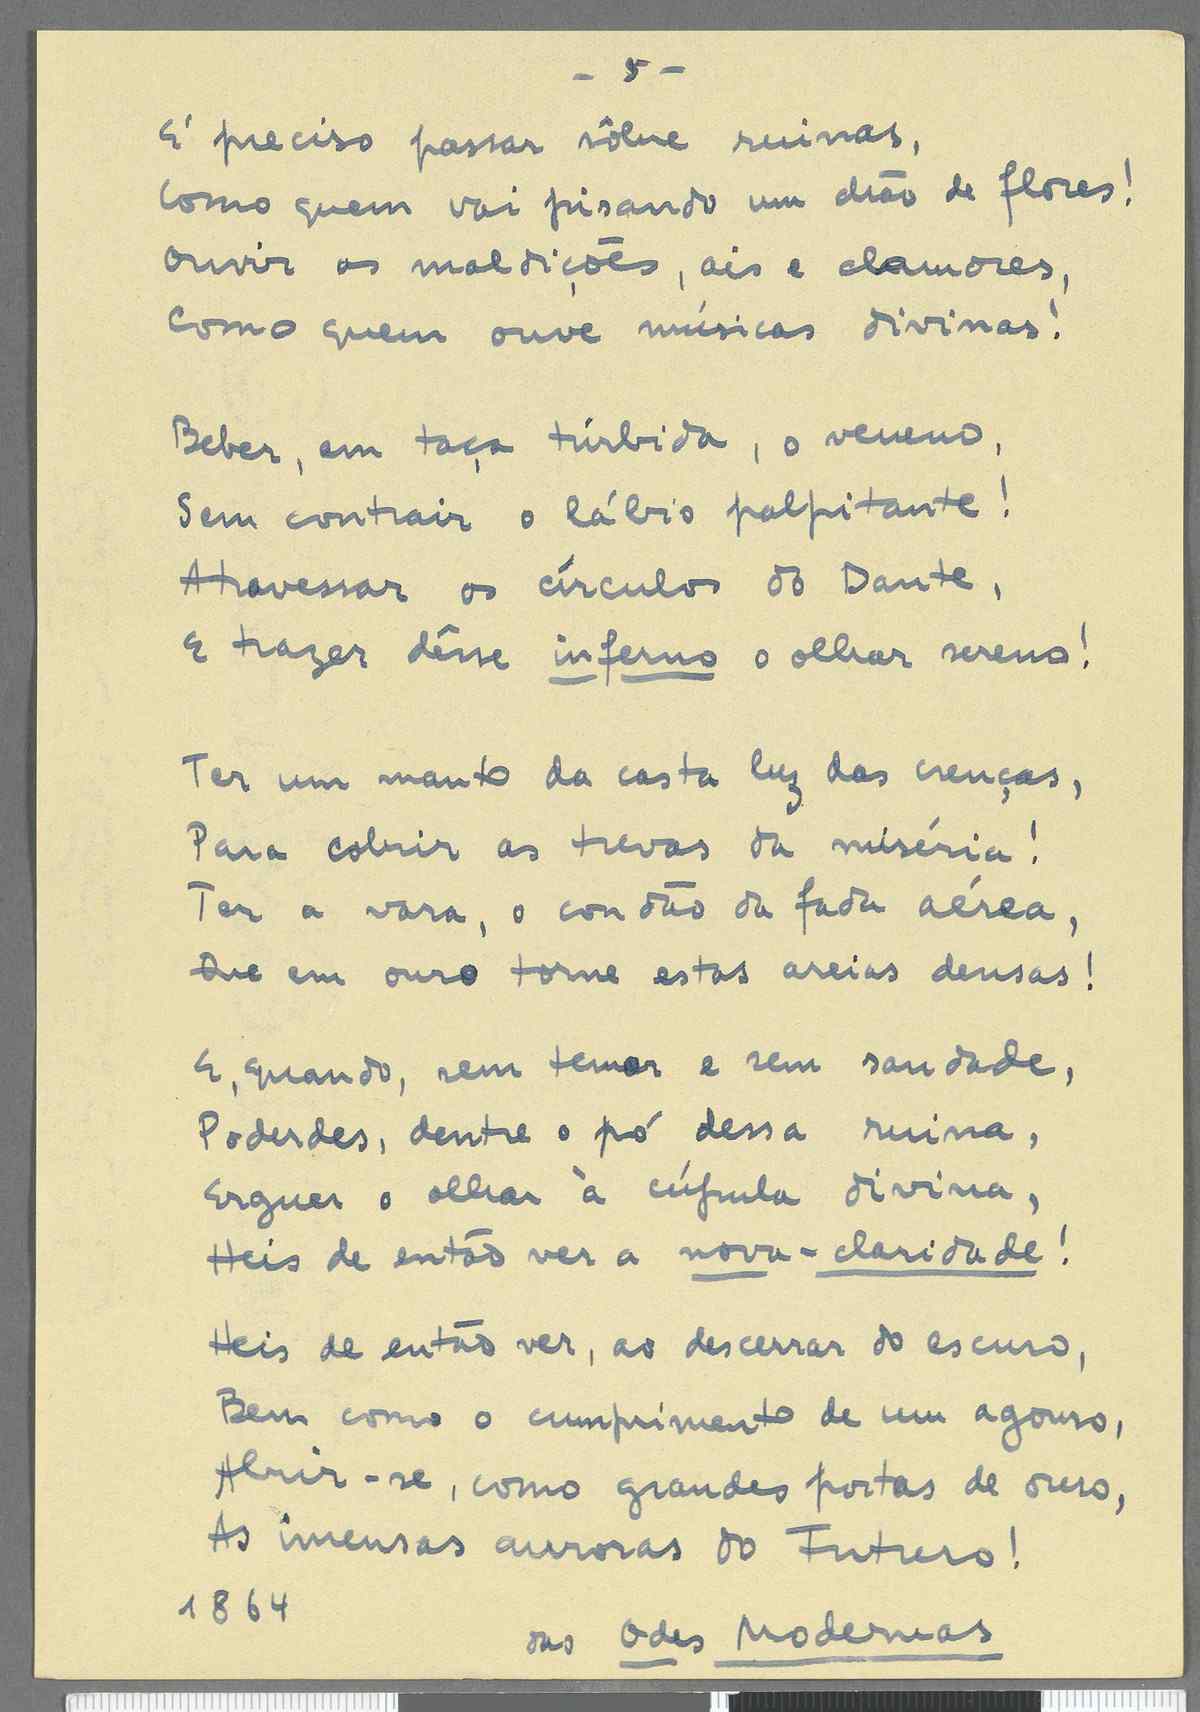 - 5 -
E' preciso passar sôbre ruinas,
Como quem vai pisando um chão de flores!
Ouvir as maldições, ais e clamores,
Como quem ouve músicas divinas!
Beber, em taça túrbida, o veneno,
Sem contrair o lábio palpitante!
Atravessar os círculos do Dante,
E trazer dêsse inferno o olhar sereno!
Ter um manto da casta luz das crenças,
Para cobrir as trevas da miséria!
Ter a vara, o condão da fada aérea,
Que em ouro torne estas areias densas!
E, quando, sem temor e sem saudade,
Poderdes, dentre o pó dessa ruina,
Erguer o olhar à cúpula divina,
Heis de então ver a nova-claridade!
Heis de então ver, ao descerrar do escuro,
Bem como o cumprimento de um agouro,
Abrir-se, como grandes portas de ouro,
As imensas auroras do Futuro!
1864
das Odes Modernas